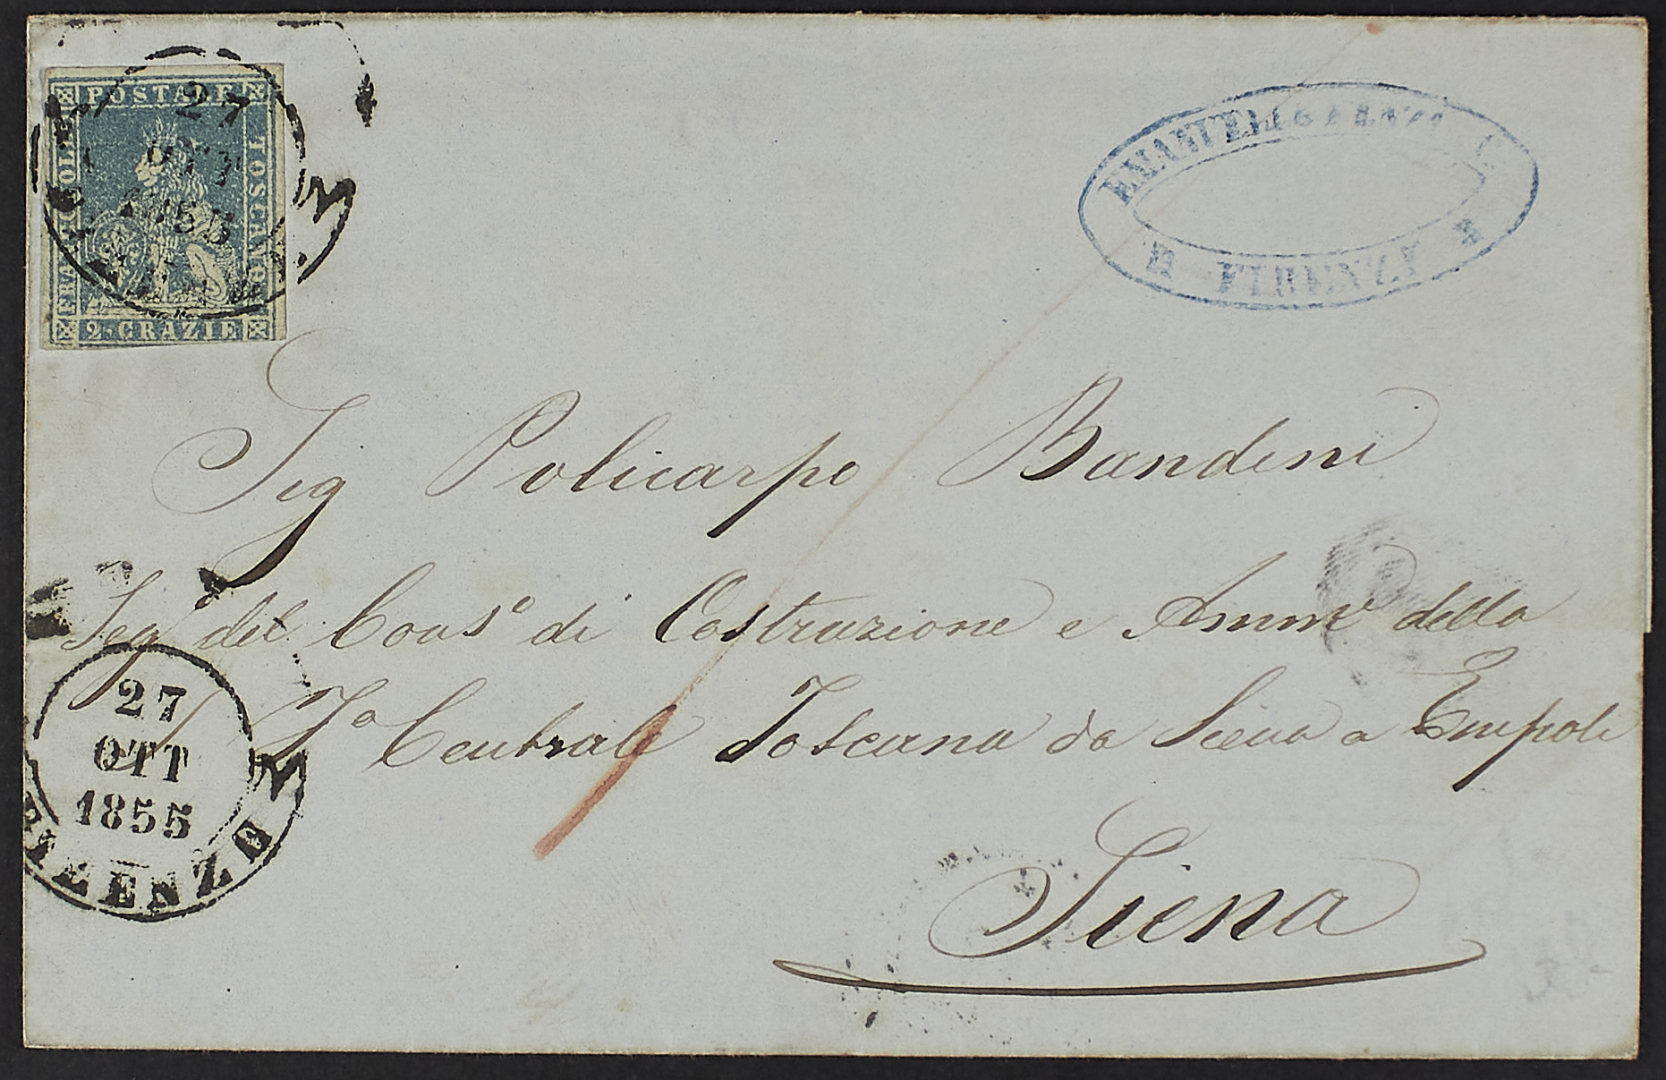 FRANCOBOLLO
POSTALE
TOSCANO
2 CRAZIE
27
OTT
1855
EMANUELE
FIRENZE
Sig Policarpo Bandini
Seg del Cons.º di Costruzione e Amm.e della
Fª Centrale Toscana da Siena a Empoli
27
OTT
1855
FIRENZE
Siena